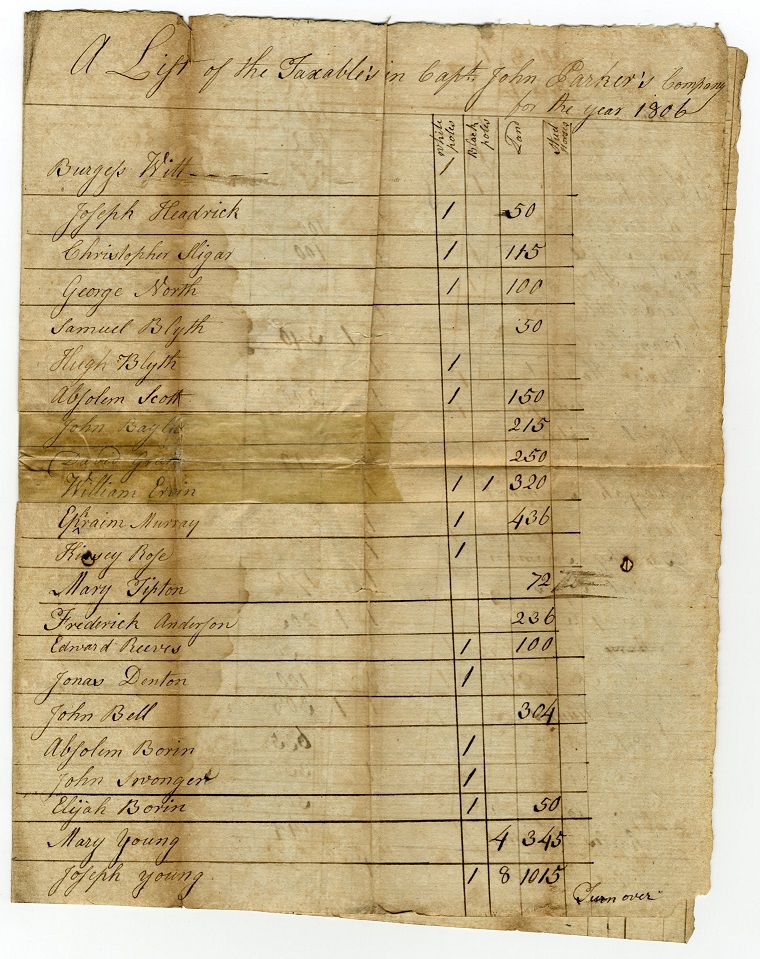 A List of the Taxable's in Capt. John Parker's Company
for the year 1806
White poles Black poles Land Stud Horses
Burgess Witt 1
Joseph Headrick 1 50
Christopher Sligar 1 115
George North 1 100
Samuel Blyth 50
Hugh Blyth 1
Absolem Scott 1 150
John Bayles 215
David 250
William Ervin 1 1 320
Ephraim Murray 1 436
Kinsey Rose 1
Mary Tipton 72
Frederick Anderson 236
Edward Reeves 1 100
Jonas Denton 1
John Bell 304
Absolem Borin 1
John Swonger 1
Elijah Borin 1 50
Mary Young 4 345
Joseph young 1 8 1015
Turn over